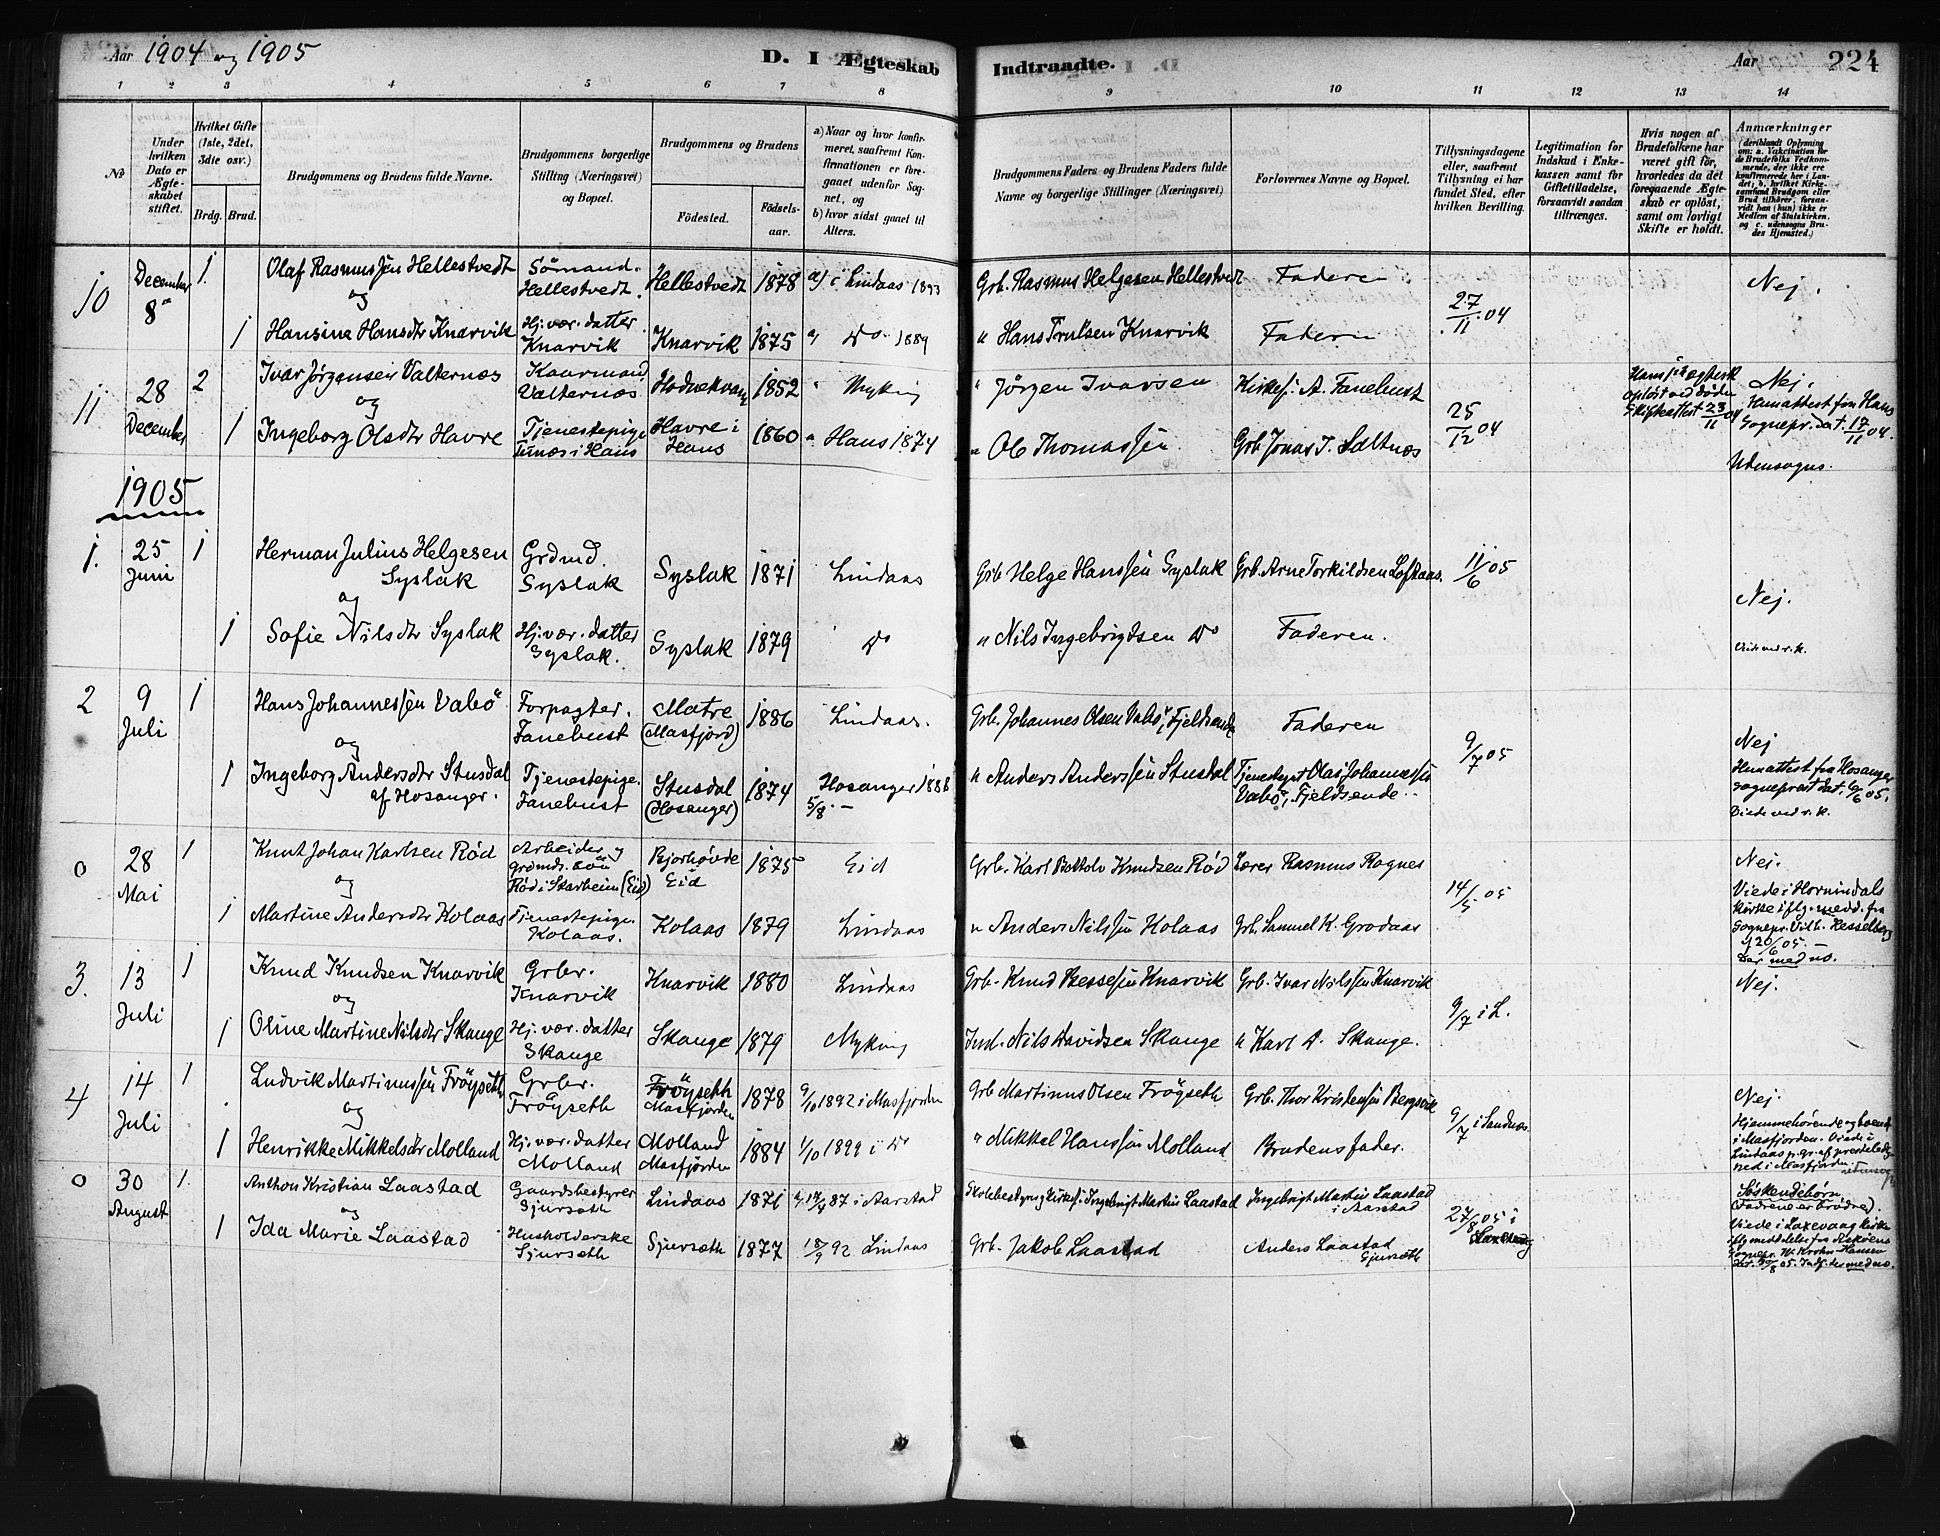 Aar 1904 og 1905
D. I Ægteskab Indtraadte.
Aar 224
1 2 3 4 5 6 7 8 9 10 11 12 13 14
No
Under hvilken Dato er Ægteskabet stiftet.
Hvilket Gifte (1ste, 2det, 3die osv.)
Brdg. Brud.
Brudgommens og Brudens fulde Navne.
Brudgommens borgerlige Stilling (Næringsvei) og Bopæl.
Brudgommens og Brudens
Fødested. Fødselsaar.
a) Naar og hvor konfirmeret, saafremt Konfirmationen er foregaaet udenfor Sognet, og
b) hvor sidst gaaet til Alters.
Brudgommens Faders og Brudens Faders fulde Navne og borgerlige Stillinger (Næringsvei)
Forlovernes Navne og Bopæl.
Tillysningsdagene eller, saafremt Tillysning ei har fundet Sted, efter hvilken Bevilling.
Legitimation for Indskud i Enkekassen samt for Giftetilladelse, forsaavidt saadan tiltrænges.
Hvis nogen af Brudefolkene har været gift før, hvorledes da det foregaaende Ægteskab er opløst, samt om lovligt Skifte er holdt.
Anmærkninger
(deriblandt Oplysning om: a. Vakcination for de Brudefolks Vedkommende, der ikke ere konfirmerede her i Landet; b. hvilket Kirkesamfund Brudgom eller Brud tilhører, forsavidt han (hun) ikke er Medlem af Statskirken. og c. udensogns Brudes Hjemsted.)
10 December 8de 1 Olaf Rasmussen Hellestvedt Sømand. Hellestvedt. Hellestvedt 1878 a) i Lindaas 1893 Grb. Rasmus Helgesen Hellestvedt Faderen 27/11.04 Nej.
og
1 Hansina Hansdtr Knarvik Hj.vær. datter Knarvik Knarvik 1875 a) Do 1889 " Hans Trulsen Knarvik Faderen
11 28 December 2 Ivar Jørgensen Valternæs Kaarmand Valternæs 1852 " Myking " Jørgen Ivarsen Kirkes. A. Fanebust 25/12 04 Nej.
og
1 Ingeborg Olsdtr Havre Tjenestepige Tunæs i Hans Havre i Hans 1860 a. Hans 1874 " Ole Thomassen Grb Jonas J. Saltnæs
opløst ved døden Skifteattest 23/11 04
Hans Sognepr. dat. 17/11 04.
Udensogns.
1905
1. 25 Juni 1 Herman Julius Helgesen Syslak Grdmd. Syslak Syslak 1871 Lindaas Grb Helge Hanssen Syslak Grb. Arne Torkildsen Loftaas. 11/6 05 Nej.
og
1 Sofie Nilsdtr Syslak Hj.vær. datter Syslak. Syslak 1879 Do " Nils Ingebrigtsen Do Faderen.
2 9 Juli 1 Hans Johannessen Vabø Forpagter. Fanebust Matre (Masfjord) 1886 Lindaas. Grb. Johannes Olsen Vabø, Fjeldsende Faderen 9/7 05 Nej
og
1 Ingeborg Andersdtr Stusdal af Hosanger. Tjenestepige. Fanebust Stusdal (Hosanger) 1874 Hosanger 1888 5/8.— " Anders Anderssen Stusdal Tjenestegut Olai Johannessen Vabø, Fjeldsende
Hosanger sogneprest dat. 9/6 05.
Viede ved v. k.
0 28 Mai 1 Knut Johan Karlsen Rød Arbeider og grdmds. søn Rød i Starheim (Eid) Bjorhøvde Eid 1875 Eid Grb. Karl Bottolv Knudsen Rød Lærer Rasmus Rognes 14/5.05 Nej.
og
1 Martine Andersdtr Kolaas Tjenestepige. Kolaas. Kolaas 1879 Lindaas " Anders Nilssen Kolaas Grb. Samuel K. Grodaas
Viede i Hornindals Kirke iflg. medd. fra Sognepr. Vilh. Hesselberg
3. 13 Juli 1 Knud Knudsen Knarvik Grbr. Knarvik Knarvik 1880 Lindaas Grb. Knud Bessesen Knarvik Grb. Ivar Nilssen Knarvik 9/7 i L. Nej.
og
1 Oline Martine Nilsdtr Skauge Hj. vær. datter Skauge Skauge 1879 Myking Ind. Nils Davidsen Skauge " Karl A. Skauge.
4 14 Juli 1 Ludvik Martinussen Frøyseth Grbr. Frøyseth Frøyseth Masfjorden 1878 9/10 1892 i Masfjorden Grb Martinus Olsen Frøyseth Grb. Thor Kristensen Bergsvik 9/7 i Sandnæs Nej.
og
1 Henrikke Mikkelsdtr Molland Hj. vær. datter Molland Molland Masfjorden 1884 1/10 1899 i Do " Mikkel Hanssen Molland Brudens fader.
Hjemmehørende og boende i Masfjorden. Viede i Lindaas
0 30 August 1. Anthon Kristian Laastad Gaardsbestyrer Sjursæth Lindaas 1871 87 i Aarstad Ingebrigt Martin Laastad Ingebrigt Martin Laastad i Aarstad 27/8 05 i Laxevaag
og
1 Ida Marie Laastad Husholderske Sjursæth Sjursæth 1877 18/9 92 Lindaas Grb. Jakob Laastad Anders Laastad Sjursæth
Søskendebørn (Fædrene er Brødre).
Viede i Laxevaag Kirke iflg meddelelse fra Askøens Sognepr. W. Krohn-Hansen